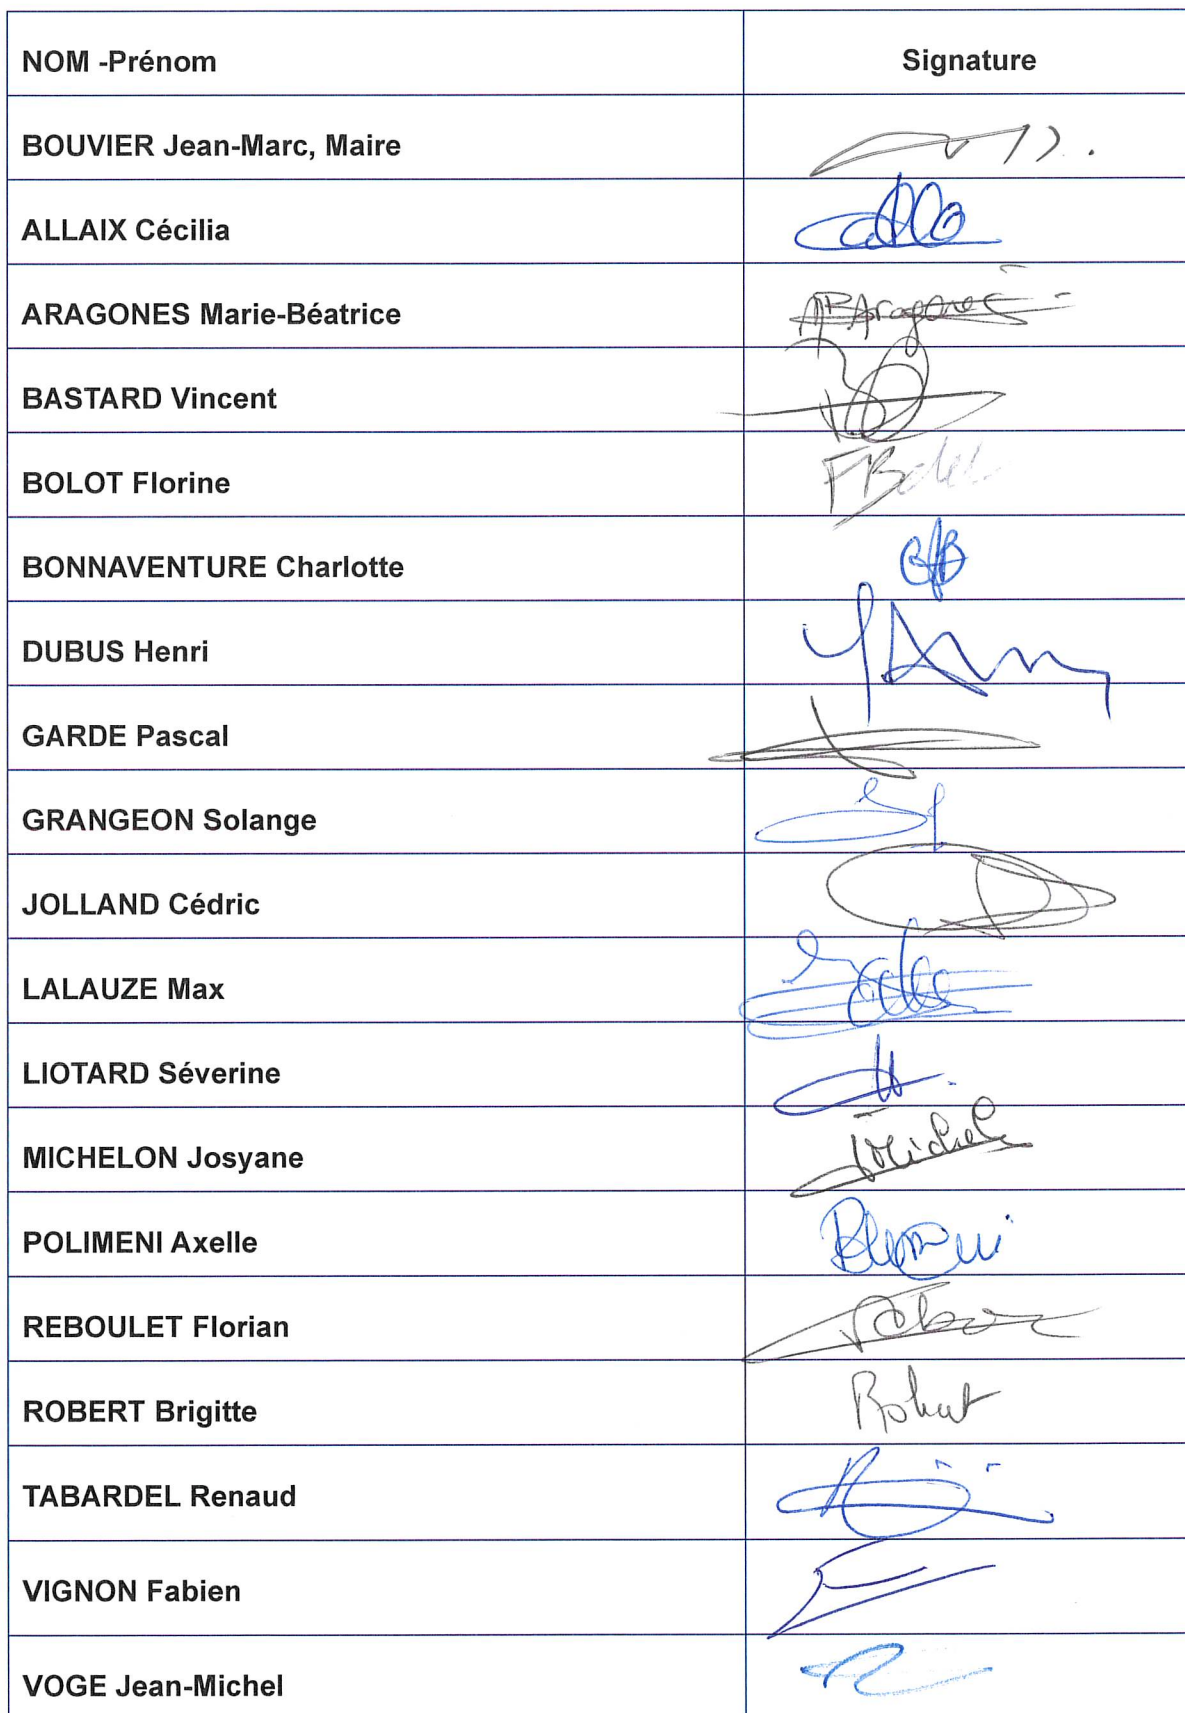 NOM -Prénom Signature
BOUVIER Jean-Marc, Maire
ALLAIX Cécilia
ARAGONES Marie-Béatrice MBAragones
BASTARD Vincent
BOLOT Florine
BONNAVENTURE Charlotte
DUBUS Henri
GARDE Pascal
GRANGEON Solange
JOLLAND Cédric
LALAUZE Max
LIOTARD Séverine
MICHELON Josyane
POLIMENI Axelle
REBOULET Florian
ROBERT Brigitte Robert
TABARDEL Renaud
VIGNON Fabien
VOGE Jean-Michel